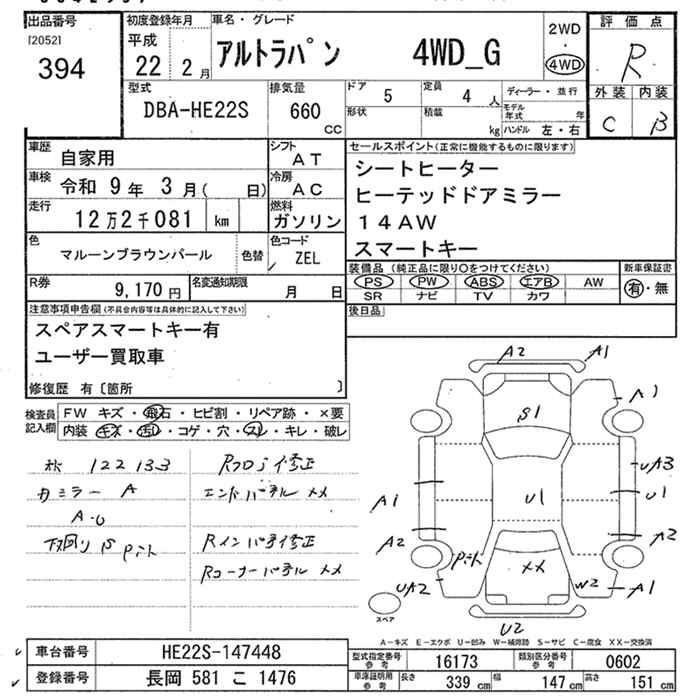 出品番号 初度登録年月 車名・グレード 2WD 評価点
[2052]
394
平成 22 2月 アルトラパン 4WD_G ・ 4WD R
型式 排気量 ドア 5 定員 4人 ディーラー・並行 外装 内装
DBA-HE22S 660 CC 形状 積載 kg モデル年式 年 ハンドル 左・右 C B
車歴 自家用 シフト AT セールスポイント(正常に機能するものに限ります)
車検 令和 9年 3月( 日) 冷房 AC シートヒーター
走行 12万2千081 km 燃料 ガソリン ヒーテッドドアミラー
14AW
色 マルーンブラウンパール 色替 色コード ZEL スマートキー
R券 9,170円 名変通知期限 月 日 装備品(純正品に限り○をつけてください) 新車保証書
PS PW ABS エアB AW 有・無
SR ナビ TV カワ
注意事項申告欄(不具合内容等は具体的に記入して下さい) 後日品
スペアスマートキー有
ユーザー買取車
修復歴 有〔箇所 〕
検査員記入欄 FW キズ・飛石・ヒビ割・リペア跡・×要
内装 キズ・汚レ・コゲ・穴・スレ・キレ・破レ
122133 Rフロア修正
カミラー A エンドパネル XX
A-U
下回りS Pホト Rインパネ修正
Rコーナーパネル XX
A2 A1
A1
S1
UA3
U1 U1
A1
A2 A2
XX
UA2 W2 A1
スペア
U2
A-キズ E-エクボ U-凹み W-補修跡 S-サビ C-腐食 XX-交換済
車台番号 HE22S-147448 型式指定番号 参考 16173 類別区分番号 参考 0602
登録番号 長岡 581 こ 1476 車庫証明用 参考 長さ 339 cm 幅 147 cm 高さ 151 cm